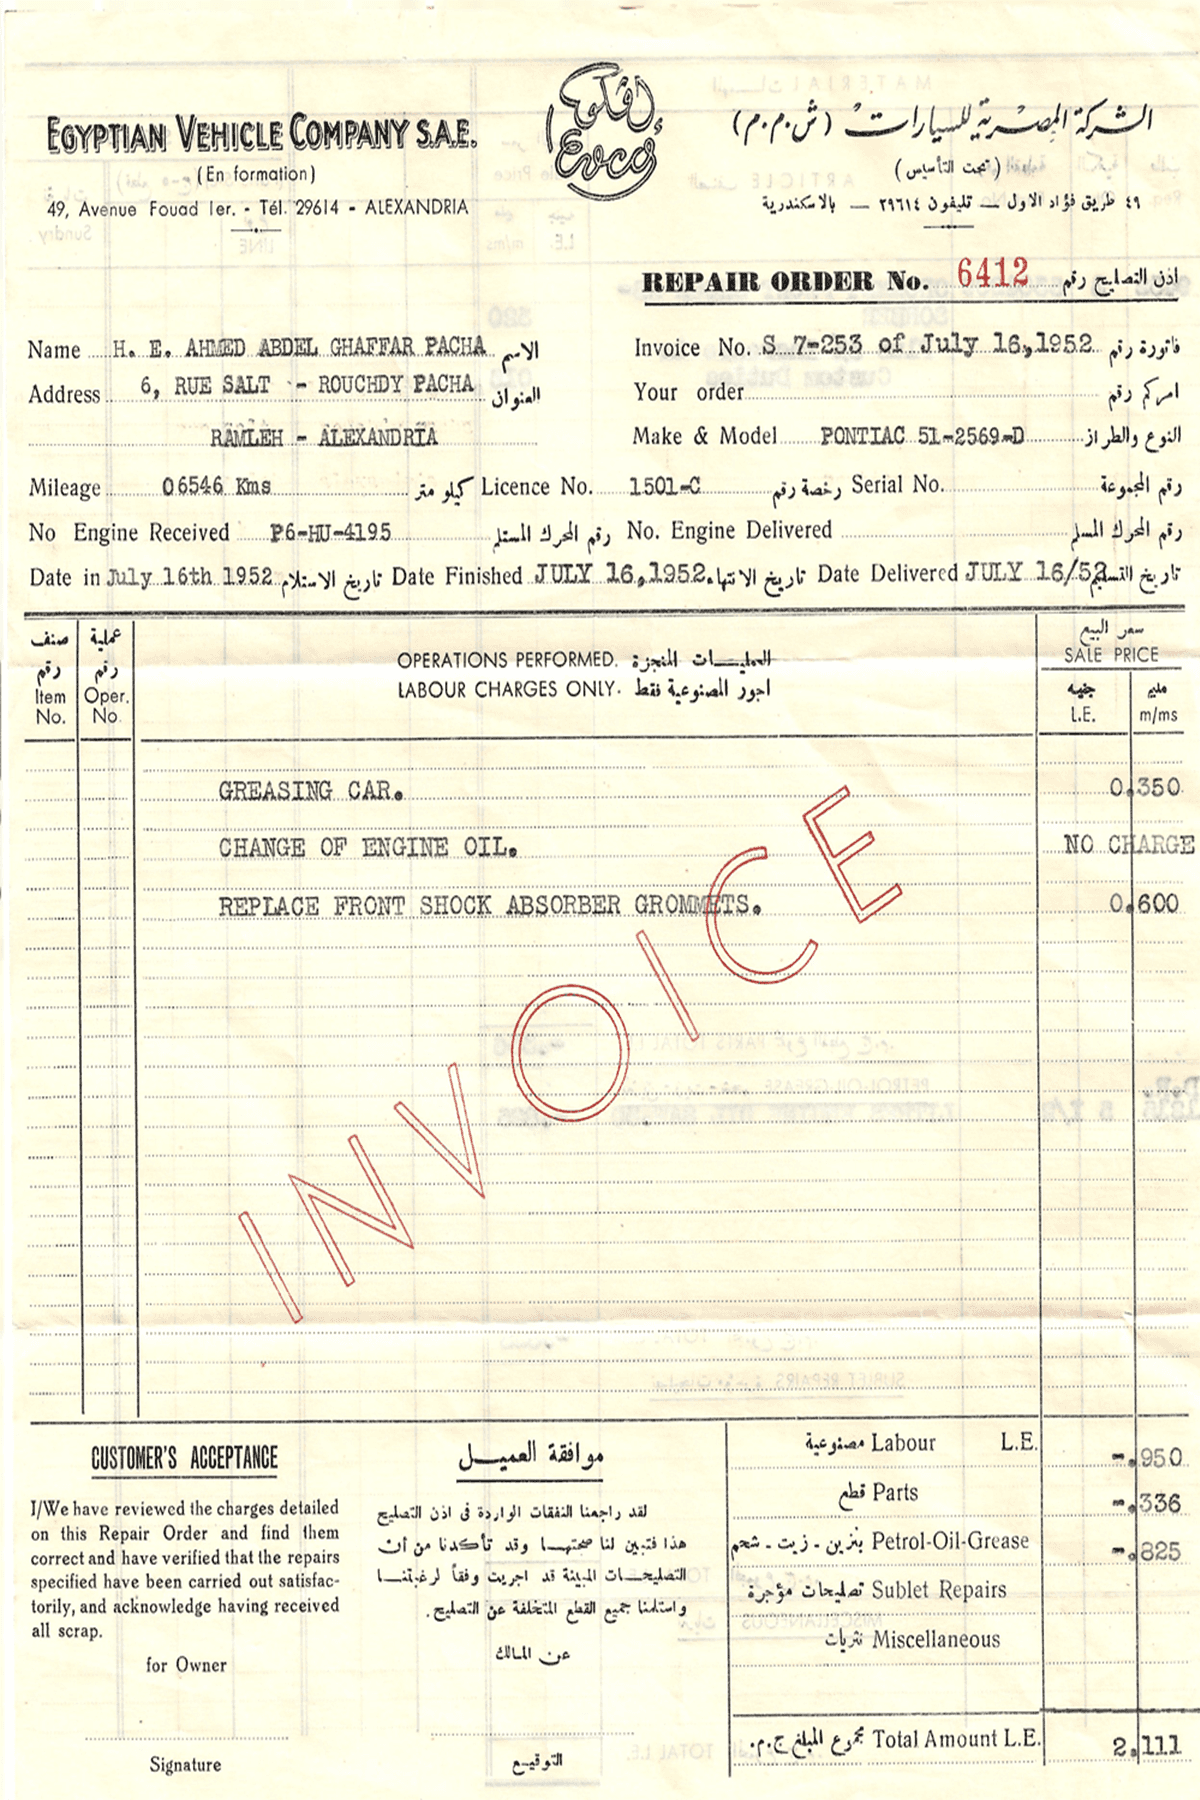 EGYPTIAN VEHICLE COMPANY S.A.E.
(En formation)
49, Avenue Fouad Ier. - Tél. 29614 - ALEXANDRIA
افكو
Evco
الشركة المصرية للسيارات (ش.م.م)
(تحت التأسيس)
٤٩ طريق فؤاد الاول — تليفون ٢٩٦١٤ — بالاسكندرية
REPAIR ORDER No. 6412 اذن التصليح رقم
Name H. E. AHMED ABDEL GHAFFAR PACHA الاسم
Invoice No. S 7-253 of July 16,1952 فاتورة رقم
Address 6, RUE SALT - ROUCHDY PACHA العنوان
Your order امركم رقم
RAMLEH - ALEXANDRIA
Make & Model PONTIAC 51-2569-D النوع والطراز
Mileage 06546 Kms كيلو متر Licence No. 1501-C رخصة رقم Serial No. رقم المجموعة
No Engine Received P6-HU-4195 رقم المحرك المستلم No. Engine Delivered رقم المحرك المسلم
Date in July 16th 1952 تاريخ الاستلام Date Finished JULY 16,1952. تاريخ الانتهاء Date Delivered JULY 16/52 تاريخ التسليم
صنف رقم
Item No.
عملية رقم
Oper. No.
OPERATIONS PERFORMED. العمليات المنجزة
LABOUR CHARGES ONLY. اجور المصنوعية فقط
سعر البيع
SALE PRICE
جنيه مليم
L.E. m/ms
GREASING CAR. 0.350
CHANGE OF ENGINE OIL. NO CHARGE
REPLACE FRONT SHOCK ABSORBER GROMMETS. 0.600
INVOICE
CUSTOMER'S ACCEPTANCE
I/We have reviewed the charges detailed
on this Repair Order and find them
correct and have verified that the repairs
specified have been carried out satisfac-
torily, and acknowledge having received
all scrap.
for Owner
Signature
موافقة العميل
لقد راجعنا النفقات الواردة في اذن التصليح
هذا فتبين لنا صحتها وقد تأكدنا من أن
التصليحات المبينة قد اجريت وفقاً لرغبتنا
واستلمنا جميع القطع المتخلفة عن التصليح.
عن المالك
التوقيع
مصنوعية Labour L.E. -.950
قطع Parts -.336
بنزين - زيت - شحم Petrol-Oil-Grease -.825
تصليحات مؤجرة Sublet Repairs
نثريات Miscellaneous
مجموع المبلغ ج.م. Total Amount L.E. 2.111